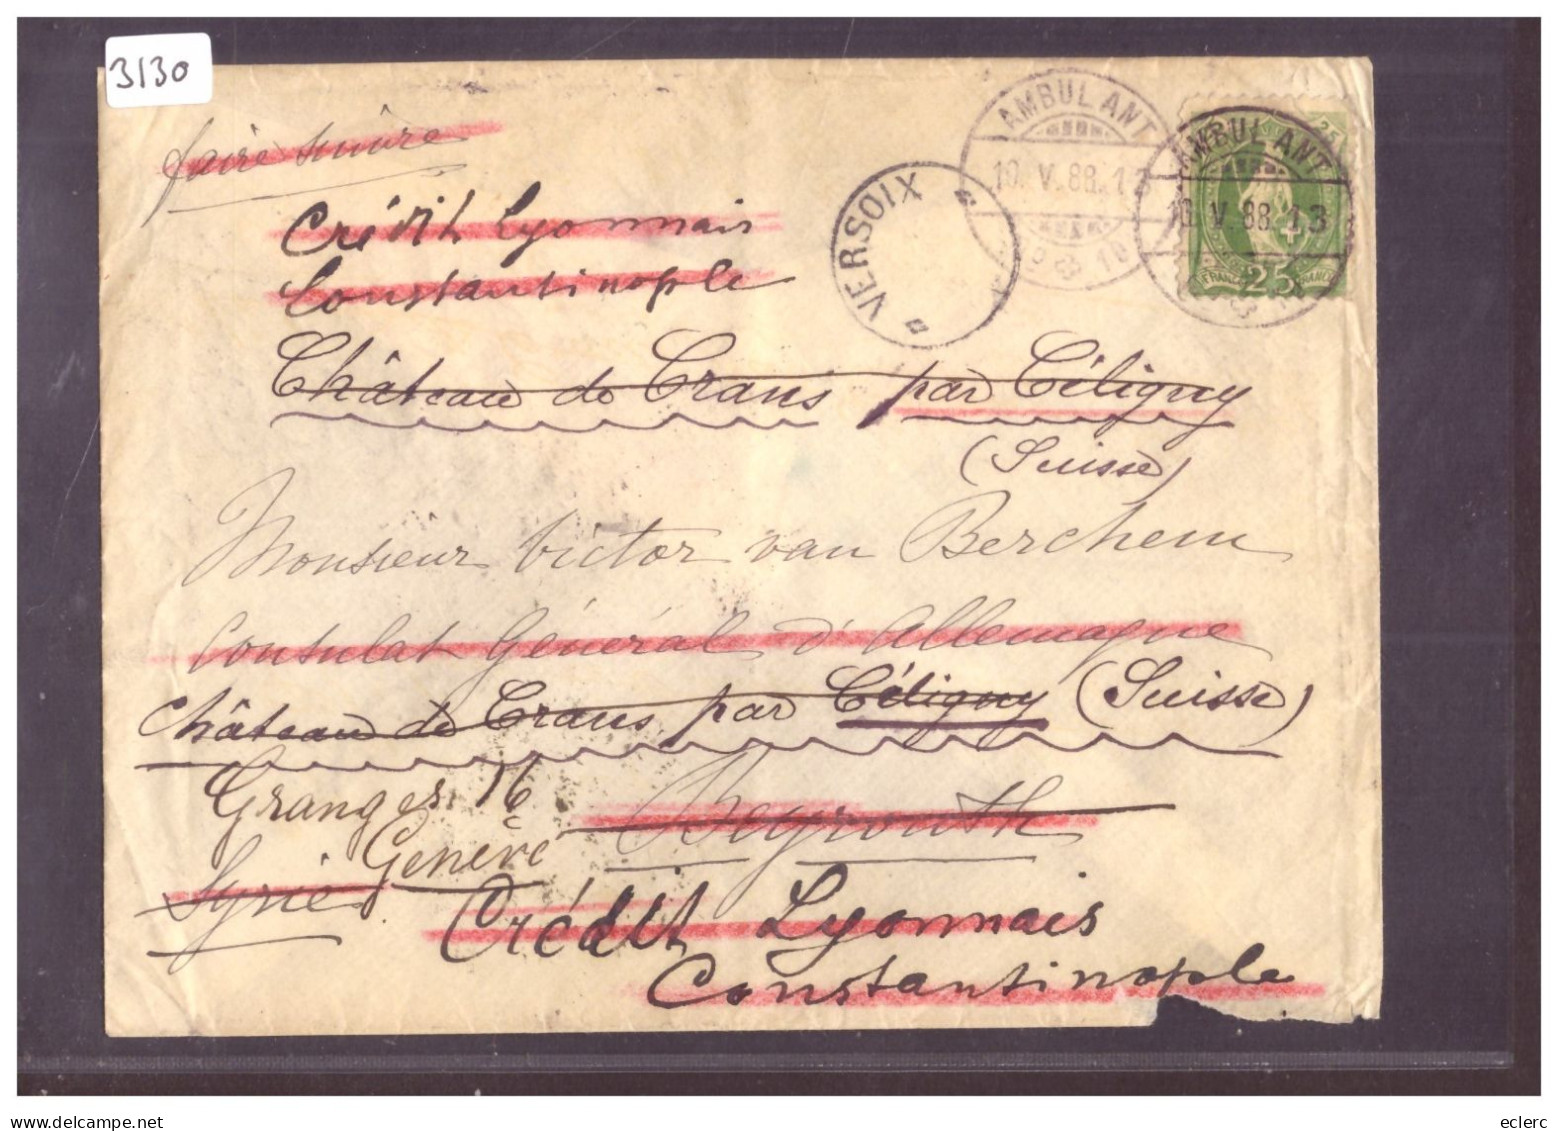 3130
faire suivre
AMBULANT
10.V.88.13
AMBULANT
10.V.88.13
25
FRANCO
VERSOIX
Crédit Lyonnais
Constantinople
Château de Crans par Céligny
(Suisse)
Monsieur Victor van Berchem
Consulat Général d'Allemagne
Château de Crans par Céligny (Suisse)
Granges 16
Beyrouth
Genève
Syrie
Crédit Lyonnais
Constantinople
delcampe.net
eclerc